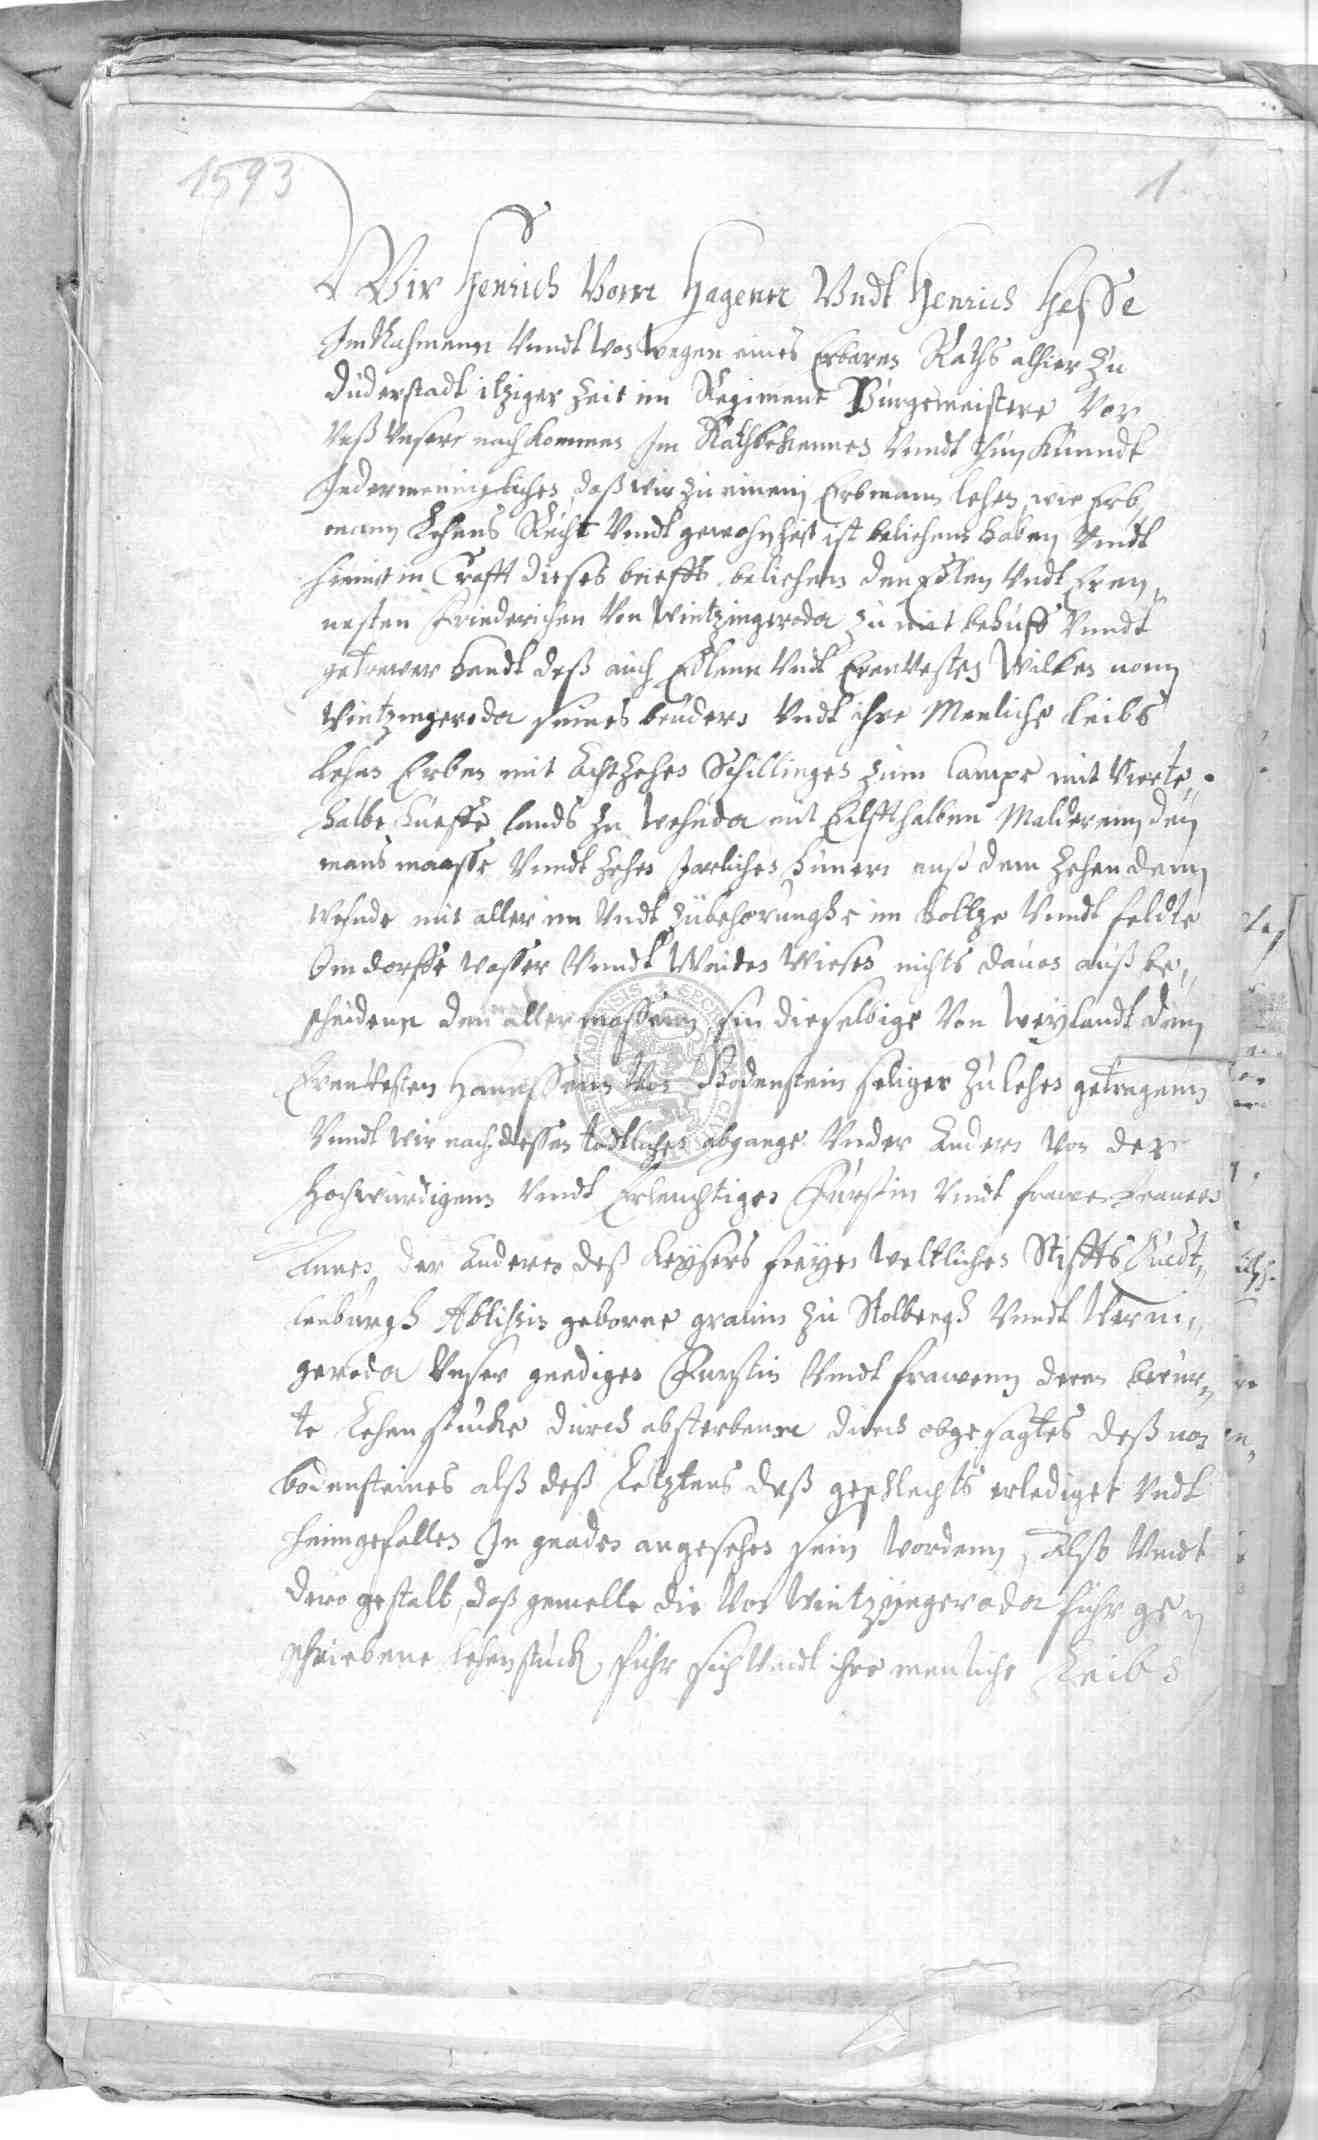 1593
1
Wir Henrich Vonn Hagenn Vndt Henrich Hesse
Im Nahmenn Vnndt von wegen eines Erbaren Raths alhier Zu
Duderstadt itziger Zeit im Regiment Burgemeistere Vor
Vnß Vnsere nachkommen Im Rath bekennen Vnndt thun Kunndt
Idermenniglichen, daß wir zu einem Erbmann lehen, wie Erb,,
mann Lehens Recht Vndt gewohnheit ist beliehenn haben Vndt
hiemit in Crafft dieses brieffs beliehenn den Edlen Vndt Eren,,
uesten Friederichen Von Wintzingeroda zu mit behuff Vnndt
getrewer handt deß auch Edlenn Vndt Erenvesten Wilken vonn
Wintzingeroda seines bruders Vndt ihre Menliche leibs
Lehns Erben mit Achtzehen Schillingen zum Campe mit Vierte,,
halbe hueffe lands zu Wehnda mit Eilffthalben Maldernn Du
mans maasse Vnndt Zehen Jarlichen hunern auß dem Zehendenn
Wehnde mit aller inn Vndt zubehorunghe im holtze Vnndt feldte
Im dorffe wasser Vnndt Weiden Wiesen nichts dauon auß be,,
scheidenn den allermassenn hin dieselbige Von Weylandt dem
Erenvesten Hannssenn Von Bodenstein seliger zu lehen getragenn
Vnndt wir nach dessen todtlichen abgange Vnder Andern von der
Hochwurdigenn Vnndt Erleuchtigen Furstin Vnndt frawen frauen
Annen, der Anderen deß Keysers freyen weltlichen Stiffts Quedt,,
lenburgh Abtissin geborne grauin zu Stolbergh Vnndt Werni,,
geroda Vnser gnediges Furstin Vnndt frawenn deren berur,,
te Lehenstucke durch absterbenn durch obgesagtes deß von
bodensteines alß deß Letztens deß geschlechts erlediget Vndt
heimgefallen In gnaden angesehen sein wordenn, Also Vnndt
dero gestalt, daß gemelte die Von Wintzingeroda fuhr ge,,
schriebene lehenstuck, fuhr sich Vnndt ihre menliche Leibs